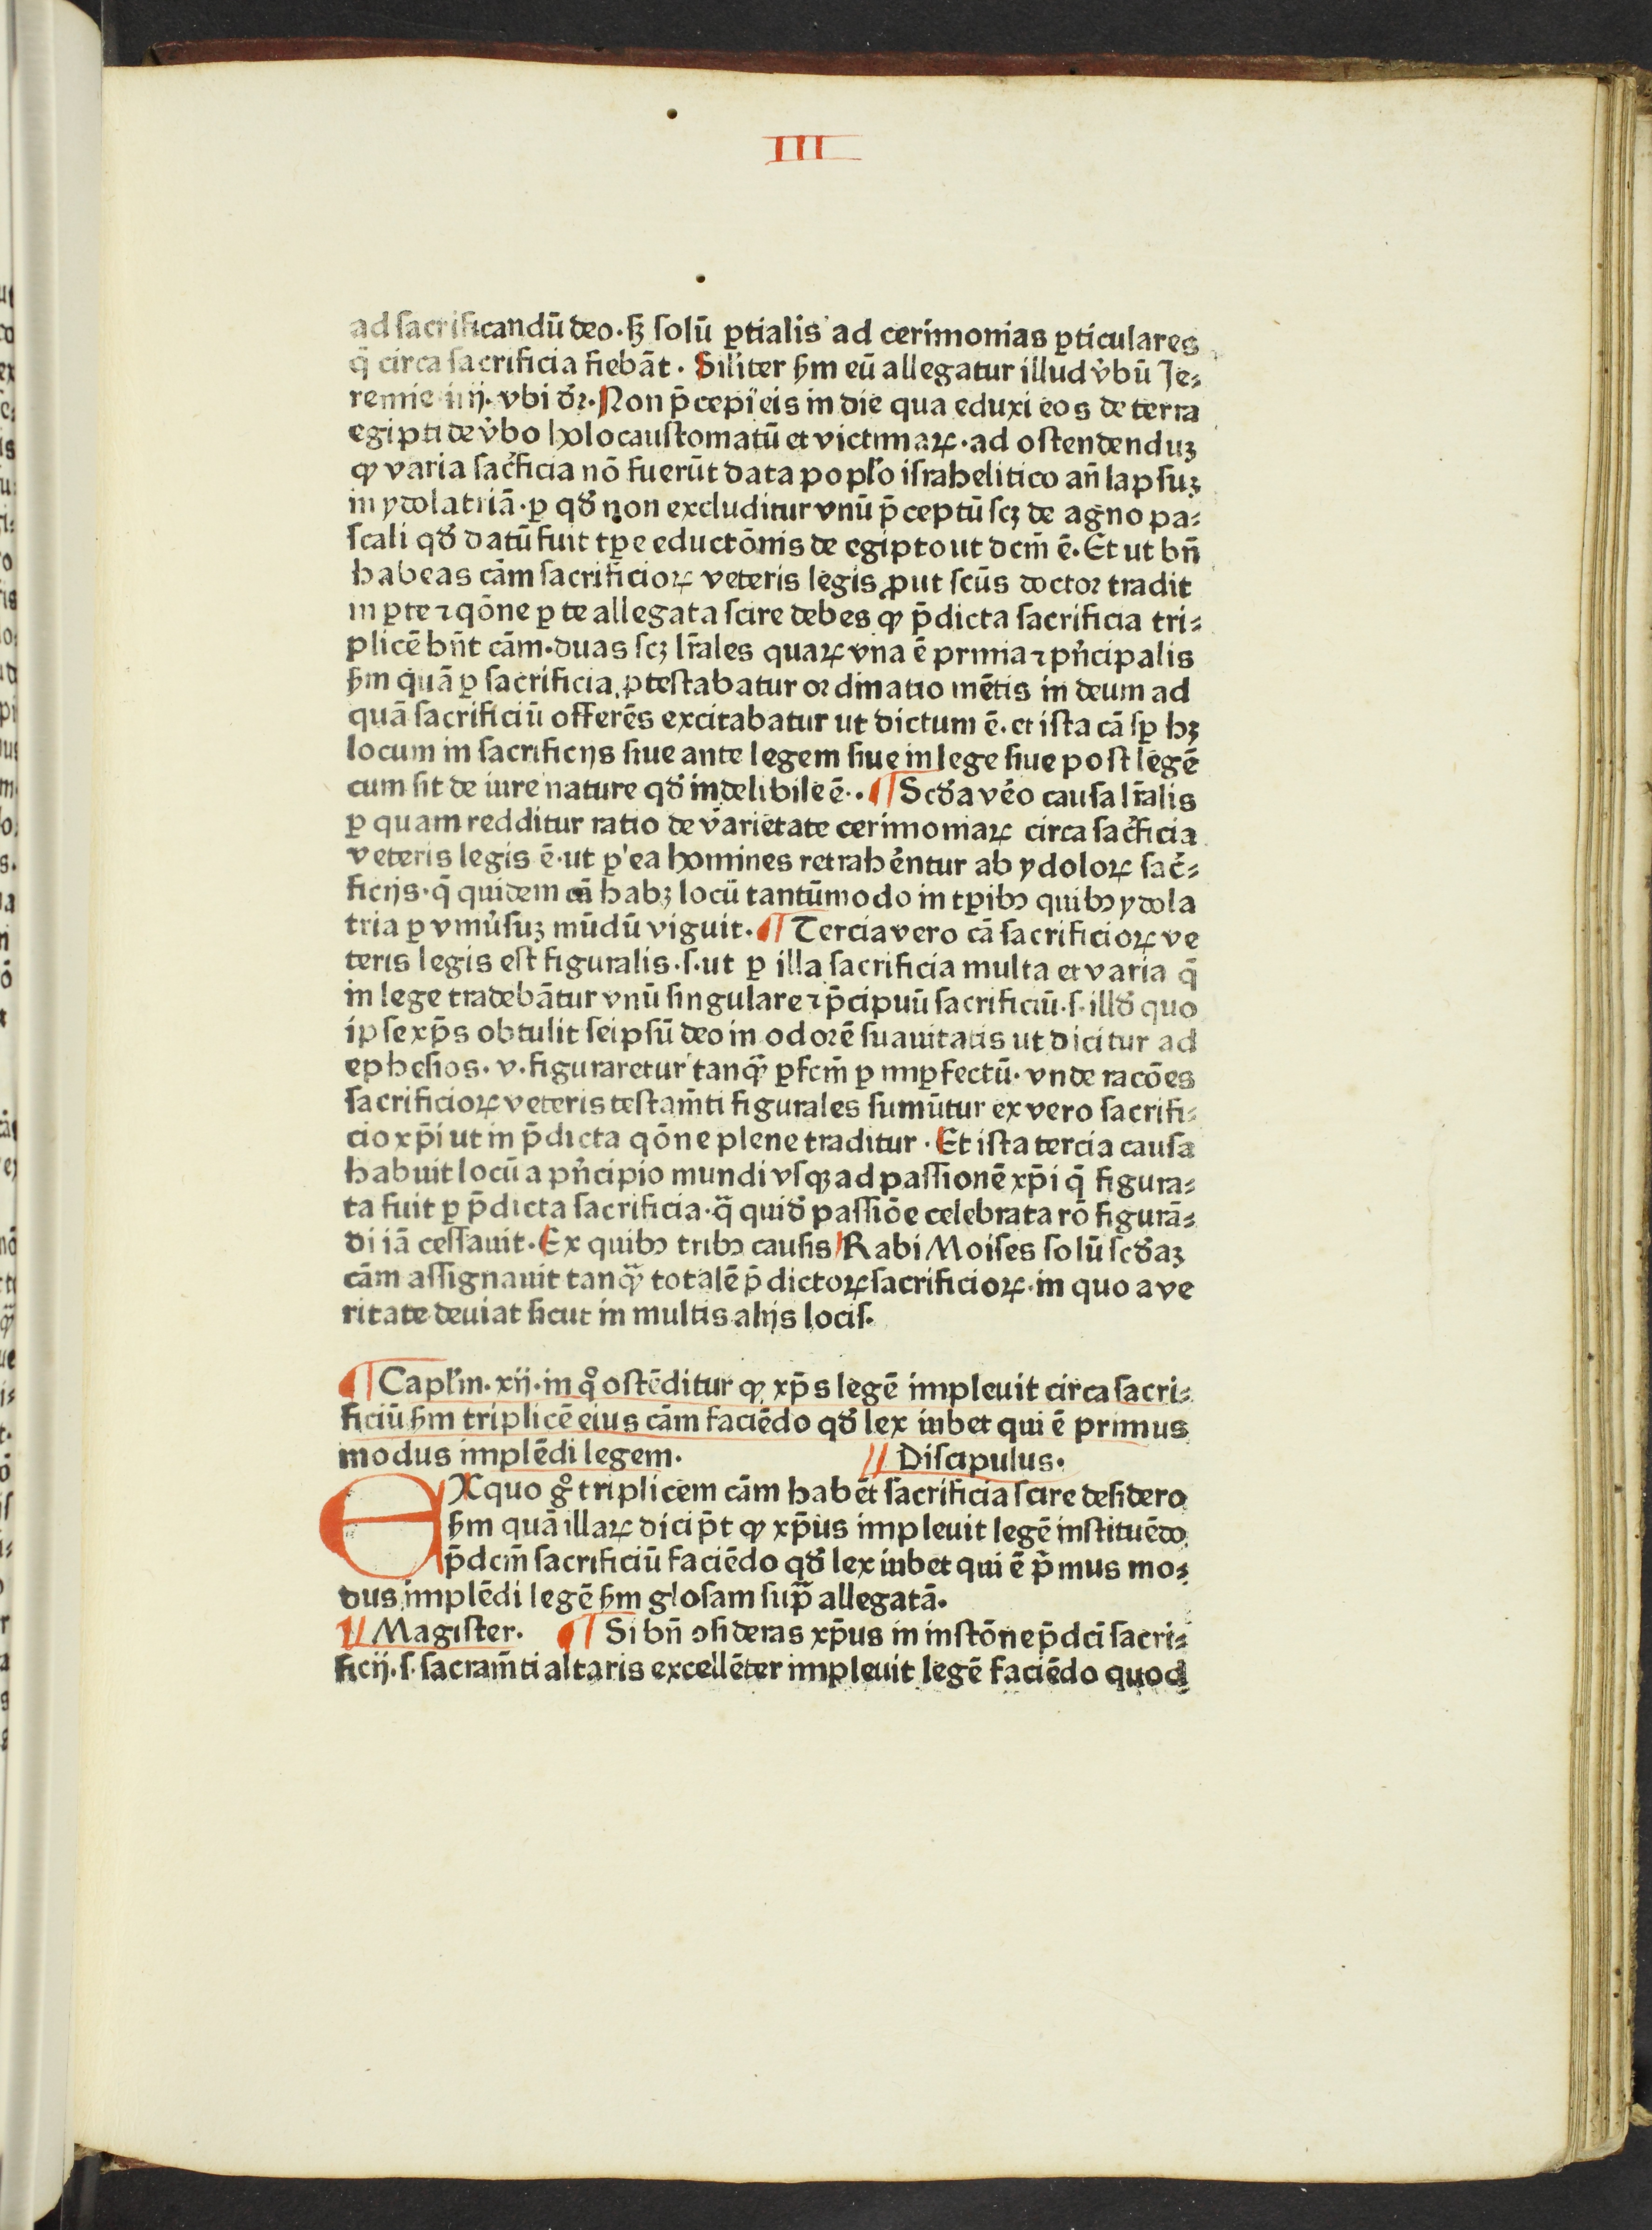 III
ad sacrificandū deo·sꝫ solū ꝑtialis ad cerimonias ꝑticulares
q̄ circa sacrificia fiebāt· Siliter ẜm eū allegatur illud v̓bū Je⸗
remie iiij· vbi dr̄·Non p̄cepi eis in die qua eduxi eos de terra
egipti de v̓bo holocaustomatū et victimaꝝ·ad ostendenduꝫ
ꝙ varia sac̓ficia nō fuerūt data poplo israhelitico an̄ lapsuꝫ
in ydolatriā·ꝑ qd̓ non excluditur vnū p̄ceptū scꝫ de agno pa⸗
scali qd̓ datū fuit tꝑe eductōnis de egipto ut dcm̄ ē·Et ut bn̄
habeas cām sacrificioꝝ veteris legis ꝓut scūs doctor tradit
in ꝑte ⁊ qōne ꝑ te allegata scire debes ꝙ p̄dicta sacrificia tri⸗
plicē hn̄t cām·duas scꝫ lr̄ales quaꝝ vna ē prima ⁊ pn̓cipalis
ẜm quā ꝑ sacrificia ꝓtestabatur ordinatio mētis in deum ad
quā sacrificiū offerēs excitabatur ut dictum ē·et ista cā sꝑ hꝫ
locum in sacrificijs siue ante legem siue in lege siue post legē
cum sit de iure nature qd̓ indelibile ē·· ¶ Scd̓a v̓o causa lr̄alis
ꝑ quam redditur ratio de varietate cerimoniaꝝ circa sac̓ficia
veteris legis ē·ut ꝑ ea homines retraherentur ab ydoloꝝ sac̓⸗
ficijs·q̄ quidem cā habꝫ locū tantūmodo in tꝑibꝯ quibꝯ ydola
tria ꝑ vniu̓suꝫ mūdū viguit· ¶ Tercia vero cā sacrificioꝝ ve
teris legis est figuralis·s·ut ꝑ illa sacrificia multa et varia q̄
in lege tradebātur vnū singulare ⁊ p̄cipuū sacrificiū·s·illd̓ quo
ipse xp̄s obtulit seipsū deo in odorē suauitatis ut dicitur ad
ephesios· v·figuraretur tanq̄ ꝑfcm̄ ꝑ imꝑfectū· vnde racōes
sacrificioꝝ veteris testam̄ti figurales sumūtur ex vero sacrifi⸗
cio xp̄i ut in p̄dicta qōne plene traditur · Et ista tercia causa
habuit locū a pn̓cipio mundi vsqꝫ ad passionē xp̄i q̄ figura⸗
ta fuit ꝑ p̄dicta sacrificia·q̄ quid̓ passiōe celebrata rō figurā⸗
di iā cessauit·Ex quibꝯ tribꝯ causis Rabi Moises solū scd̓aꝫ
cām assignauit tanq̄ totalē p̄dictoꝝ sacrificioꝝ·in quo a ve
ritate deuiat sicut in multis alijs locis·
¶ Caplm̄· xij·in qͦ ostēditur ꝙ xp̄s legē impleuit circa sacri⸗
ficiū ẜm triplicē eius cām faciēdo qd̓ lex iubet qui ē primus
modus implēdi legem· // Discipulus·
EX quo gͦ triplicem cām habēt sacrificia scire desidero
ẜm quā illaꝝ dici p̄t ꝙ xp̄us impleuit legē instituēdo
p̄dcm̄ sacrificiū faciēdo qd̓ lex iubet qui ē p̄mus mo⸗
dus implēdi legē ẜm glosam sup̄ allegatā·
// Magister· ¶ Si bn̄ ꝯsideras xp̄us in instōne p̄dci̓ sacri⸗
ficij·s·sacram̄ti altaris excellēter impleuit legē faciēdo quod